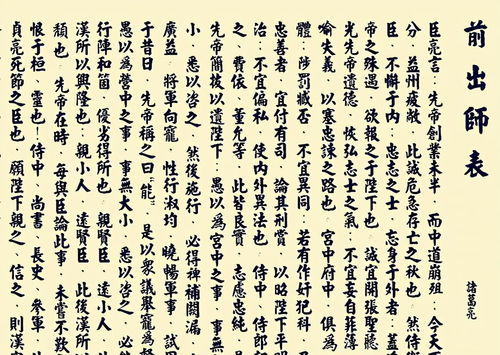 前出師表
諸葛亮
臣亮言·先帝創業未半·而中道崩殂·今天
分·益州疲敝·此誠危急存亡之秋也·然侍衛
臣·不懈于內·忠志之士·忘身于外者·蓋
帝之殊遇·欲報之于陛下也·誠宜開張聖聽
光先帝遺德·恢弘志士之氣·不宜妄自菲薄
喻失義·以塞忠諫之路也·宮中府中·俱為
體·陟罰臧否·不宜異同·若有作奸犯科·及
忠善者·宜付有司·論其刑賞·以昭陛下平明
治·不宜偏私·使內外異法也·侍中·侍郎
之·費依·董允等·此皆良實·志慮忠純·是
先帝簡拔以遺陛下·愚以為宮中之事·事無
小·悉以咨之·然後施行·必得裨補闕漏·
廣益·將軍向寵·性行淑均·曉暢軍事·試用
于昔日·先帝稱之曰能·是以眾議舉寵為督
愚以為營中之事·事無大小·悉以咨之·必能
行陣和睦·優劣得所也·親賢臣·遠小人·
漢所以興隆也·親小人·遠賢臣·此後漢所以
頹也·先帝在時·每與臣論此事·未嘗不歎
恨于桓·靈也!侍中·尚書·長史·參軍·
貞亮死節之臣也·願陛下親之·信之·則漢